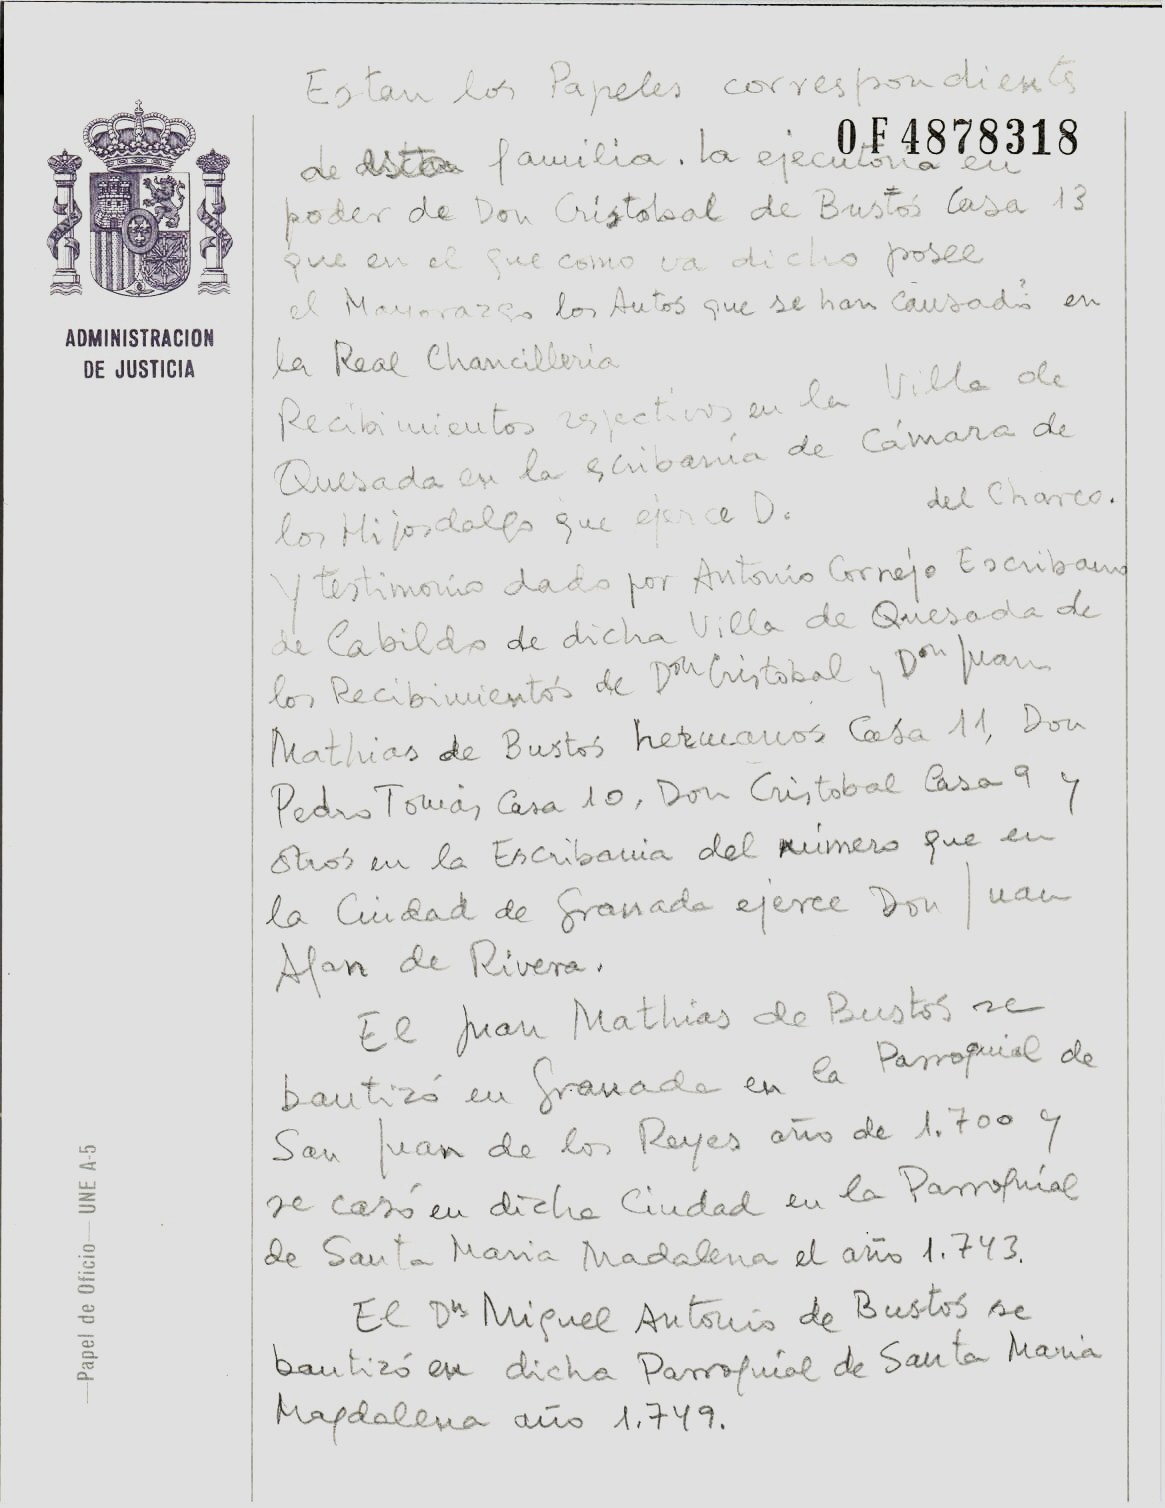 Estan los Papeles correspondients
0F4878318
de esta familia. la ejecutoria en
poder de Don Cristobal de Bustos Casa 13
que en el que como va dicho posee
el Mayorazgo los Autos que se han causado en
la Real Chancilleria
Recibimientos respectivos en la Villa de
Quesada en la escribanía de Cámara de
los Hijosdalgo que ejerce D. del Charco.
Y testimonio dado por Antonio Cornejo Escribano
de Cabildo de dicha Villa de Quesada de
los Recibimientos de Don Cristobal y Don Juan
Mathias de Bustos hermanos Casa 11, Don
Pedro Tomás Casa 10, Don Cristobal Casa 9 y
otros en la Escribania del número que en
la Ciudad de Granada ejerce Don Juan
Afan de Rivera.
El Juan Mathias de Bustos se
bautizó en Granada en la Parroquial de
San Juan de los Reyes año de 1.700 y
se casó en dicha Ciudad en la Parroquial
de Santa Maria Madalena el año 1.743.
El Dn Miguel Antonio de Bustos se
bautizó en dicha Parroquial de Santa Maria
Magdalena año 1.749.
ADMINISTRACION
DE JUSTICIA
Papel de Oficio — UNE A-5